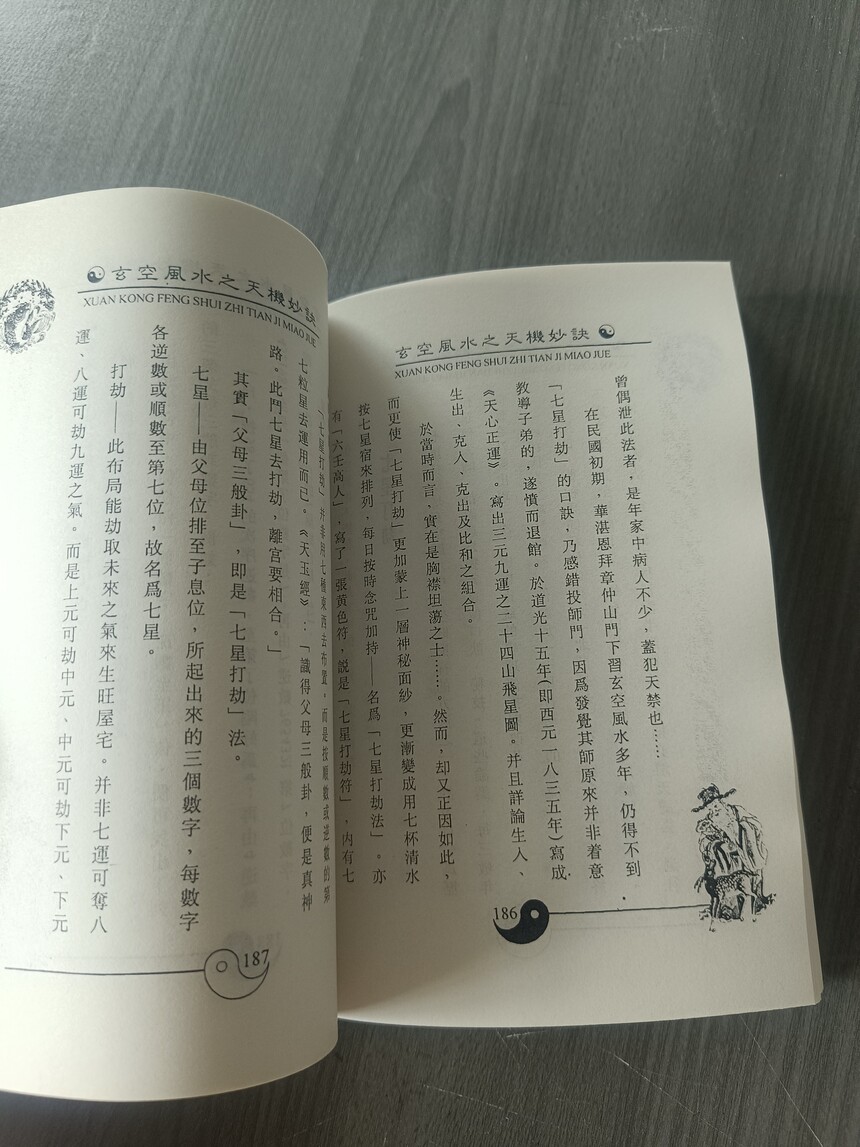 玄空風水之天機妙訣
XUAN KONG FENG SHUI ZHI TIAN JI MIAO JUE
曾偶泄此法者，是年家中病人不少，蓋犯天禁也……
在民國初期，華湛恩拜章仲山門下習玄空風水多年，仍得不到
「七星打劫」的口訣，乃感錯投師門，因爲發覺其師原來并非着意
教導子弟的，遂憤而退館。於道光十五年(即西元一八三五年)寫成
《天心正運》。寫出三元九運之二十四山飛星圖。并且詳論生入、
生出、克入、克出及比和之組合。
於當時而言，實在是胸襟坦蕩之士……。然而，却又正因如此，
而更使「七星打劫」更加蒙上一層神秘面紗，更漸變成用七杯清水
按七星宿來排列，每日按時念咒加持——名爲「七星打劫法」。亦
有「六壬高人」，寫了一張黄色符，説是「七星打劫符」，内有七
186
玄空風水之天機妙訣
XUAN KONG FENG SHUI ZHI TIAN JI MIAO JUE
「七星打劫」并非用七種東西去布置，而是按順數或逆數的第
七粒星去運用而已。《天玉經》：「識得父母三般卦，便是真神
路。此鬥七星去打劫，離宫要相合。」
其實「父母三般卦」，即是「七星打劫」法。
七星——由父母位排至子息位，所起出來的三個數字，每數字
各逆數或順數至第七位，故名爲七星。
打劫——此布局能劫取未來之氣來生旺屋宅。并非七運可奪八
運、八運可劫九運之氣。而是上元可劫中元、中元可劫下元、下元
187